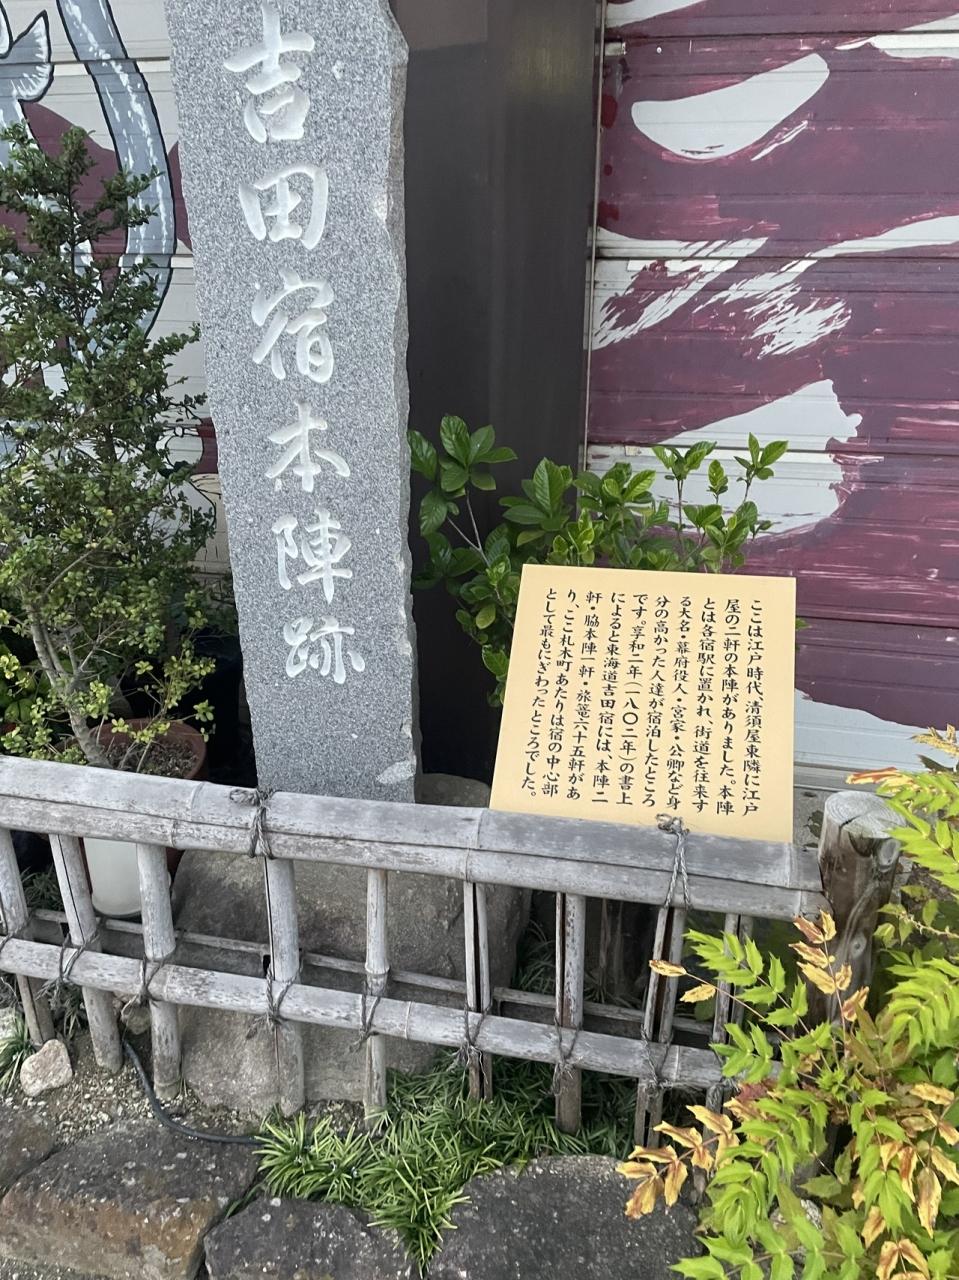 吉田宿本陣跡
ここは江戸時代、清須屋東隣に江戸
屋の二軒の本陣がありました。本陣
とは各宿駅に置かれ、街道を往来す
る大名・幕府役人・宮家・公卿など身
分の高かった人達が宿泊したところ
です。享和二年(一八〇二年)の書上
によると東海道吉田宿には、本陣二
軒・脇本陣一軒・旅篭六十五軒があ
り、ここ札木町あたりは宿の中心部
として最もにぎわったところでした。